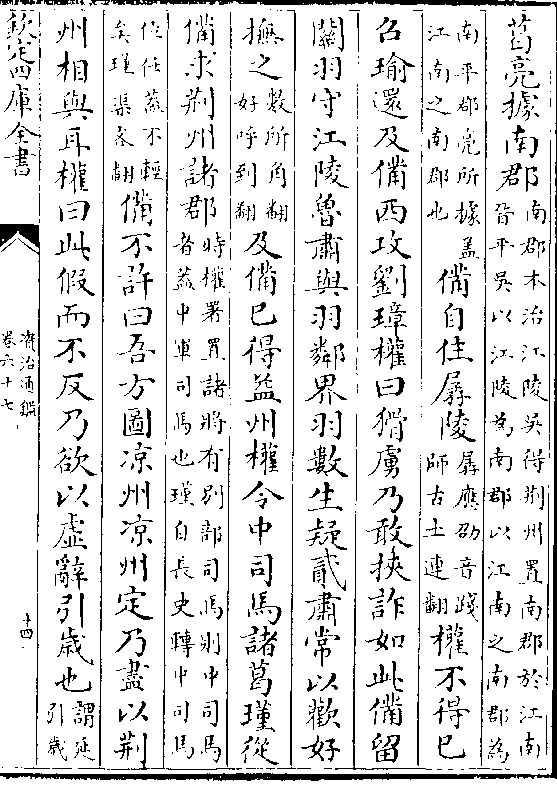 葛亮據南郡南郡本治江陵吳得荆州置南郡於江南
晉平吳以江陵為南郡以江南之南郡為
南平郡亮所據蓋
江南之南郡也備自住孱陵孱應劭音踐
師古士連翻權不得已
召瑜還及備西攻劉璋權曰猾虜乃敢挾詐如此備留
關羽守江陵魯肅與羽鄰界羽數生疑貳肅常以歡好
撫之數所角翻
好呼到翻及備已得益州權令中司馬諸葛瑾從
備求荆州諸郡時權署置諸將有别部司馬則中司馬
者蓋中軍司馬也瑾自長史轉中司馬
位任蓋不輕
矣瑾渠吝翻備不許曰吾方圖涼州涼州定乃盡以荆
州相與耳權曰此假而不反乃欲以虛辭引歲也謂延
引歲
欽定四庫全書
資治通鑑
卷六十七
十四